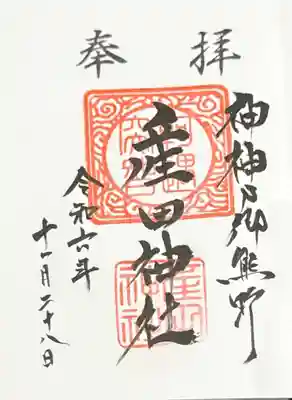 奉拝
神神乃郷熊野
産田神社
令和六年
十一月二十八日